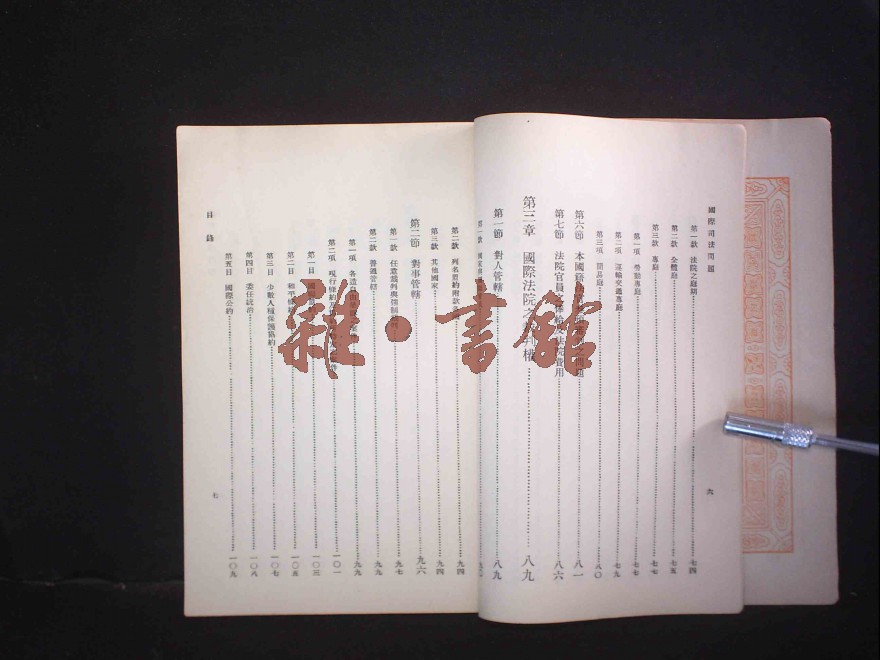 國際司法問題
第一款 法院之庭期 七四
第二款 全體庭 七五
第三款 專庭 七七
第一項 勞動專庭 七七
第二項 運輸交通專庭 七九
第三項 簡易庭 八〇
第六節 本國 八一
第七節 法院官員 法院費用 八六
第三章 國際法院之 權 八九
第一節 對人管轄 八九
第一款 國家 九〇
六
第二款 列名盟約附款 九四
第三款 其他國家 九四
第二節 對事管轄 九六
第一款 任意裁判與 九七
第二款 普通管轄 九九
第一項 各造 九九
第二項 現行條約 件 一〇一
第一目 國際 一〇三
第二目 和平條約 一〇五
第三目 少數人種保護協約 一〇七
第四目 委任統治 一〇八
第五目 國際公約 一〇九
目錄
七
雜·書館